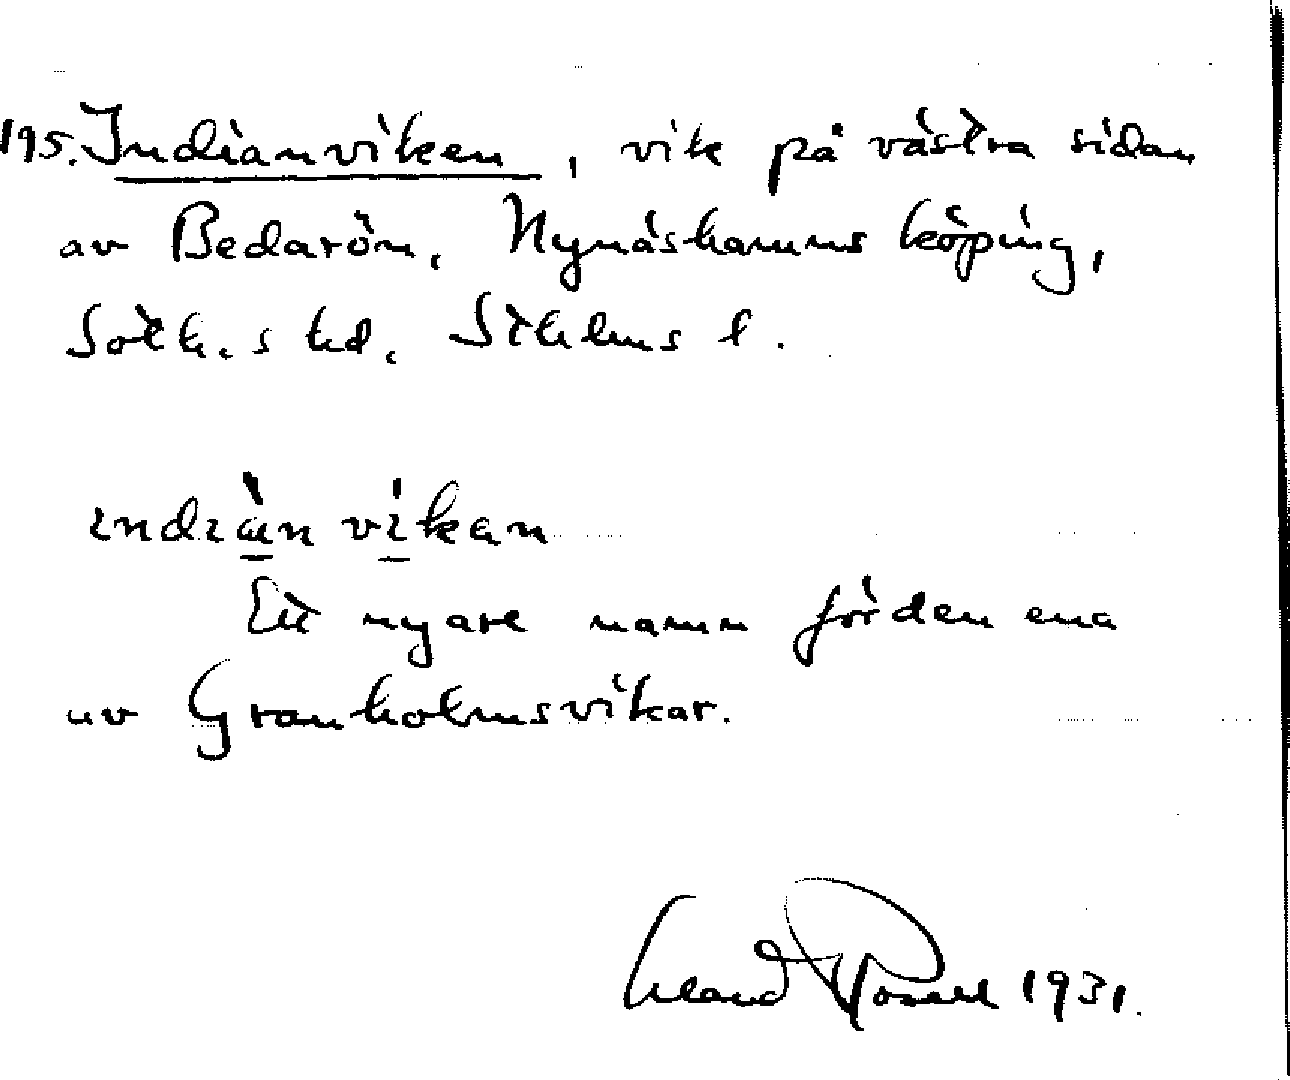 195. Indianviken, vik på västra sidan
av Bedarön, Nynäshamns köping,
Soth.s hd. Sthlms l.
indiàn víkan
Ett nyare namn för den ena
av Granholmsvikar.
Erland Rosell 1931.